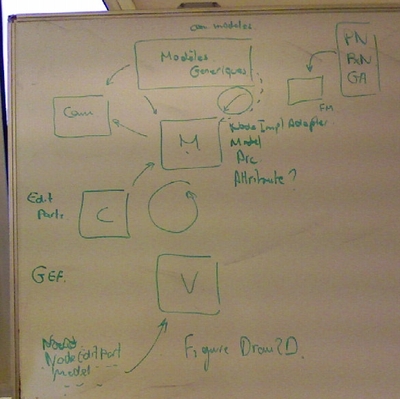 com modeles
Modèles
Generiques
PN
BxN
GA
FM
Com
M
NodeImplAdapter
Model
Arc
Attribute ?
Edit
Part
C
GEF
V
NodeEditPart
Model
Figure Draw2D.